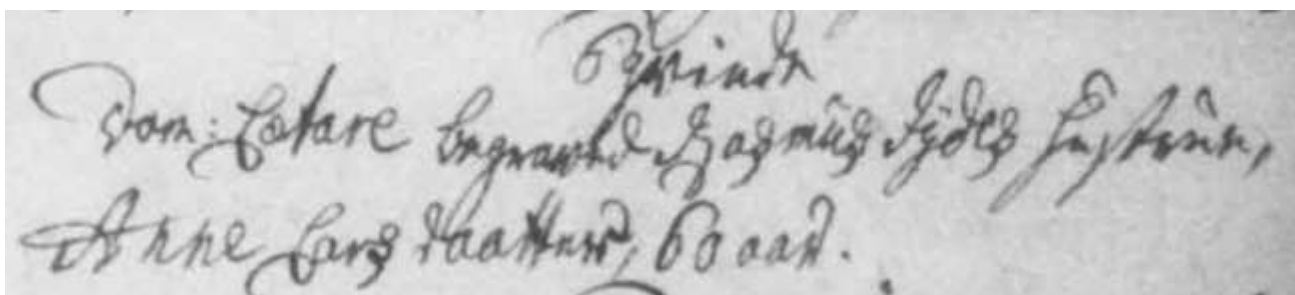 Qvinde
Dom: Lætare begraved Rasmus Jydes Hustrue,
Anne Lars daatter, 60 aar.